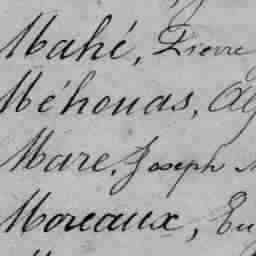 Mahé, Pierre
Méhouas,
Mare, Joseph
Moreaux,